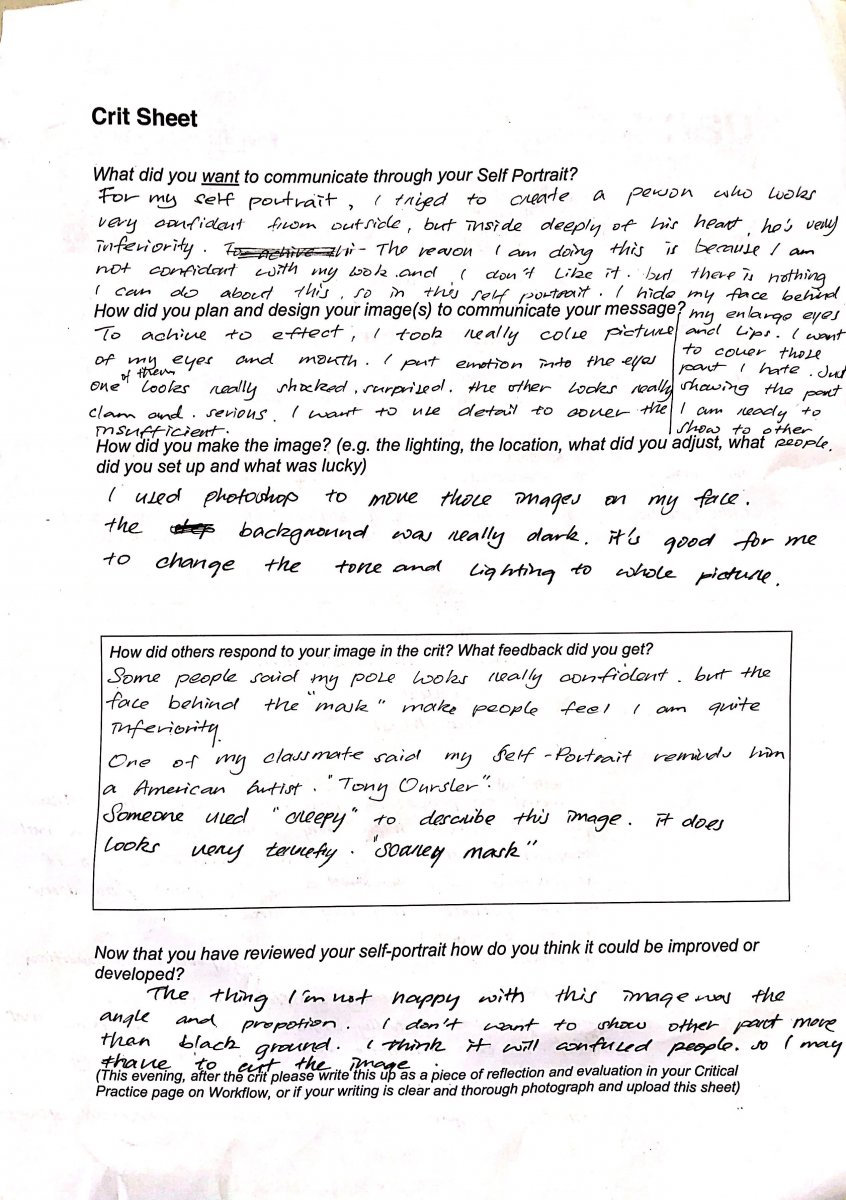 Crit Sheet
What did you want to communicate through your Self Portrait?
For my self portrait, I tried to create a person who looks
very confident from outside, but inside deeply of his heart, he's very
inferiority. The reason I am doing this is because I am
not confident with my look and I don't like it. but there is nothing
I can do about this, so in this self portrait. I hide my face behind
my enlarge eyes
and lips. I want
to cover those
part I hate. Just
showing the part
I am ready to
show to other
people.
How did you plan and design your image(s) to communicate your message?
To achive to effect, I took really colse picture
of my eyes and mouth. I put emotion into the eyes
one of them looks really shocked, surprised. the other looks really
clam and. serious. I want to use detail to cover the
insufficient.
How did you make the image? (e.g. the lighting, the location, what did you adjust, what
did you set up and what was lucky)
I used photoshop to move those images on my face.
the background was really dark. it's good for me
to change the tone and lighting to whole picture.
How did others respond to your image in the crit? What feedback did you get?
Some people said my pose looks really confident. but the
face behind the "mask" make people feel I am quite
inferiority.
One of my classmate said my Self-Portrait reminds him
a American Artist. "Tony Oursler".
Someone used "creepy" to describe this image. it does
looks very terrefy. "scarey mask"
Now that you have reviewed your self-portrait how do you think it could be improved or
developed?
The thing I'm not happy with this image was the
angle and propotion. I don't want to show other part more
than black ground. I think it will confused people. so I may
have to cut the image.
(This evening, after the crit please write this up as a piece of reflection and evaluation in your Critical
Practice page on Workflow, or if your writing is clear and thorough photograph and upload this sheet)